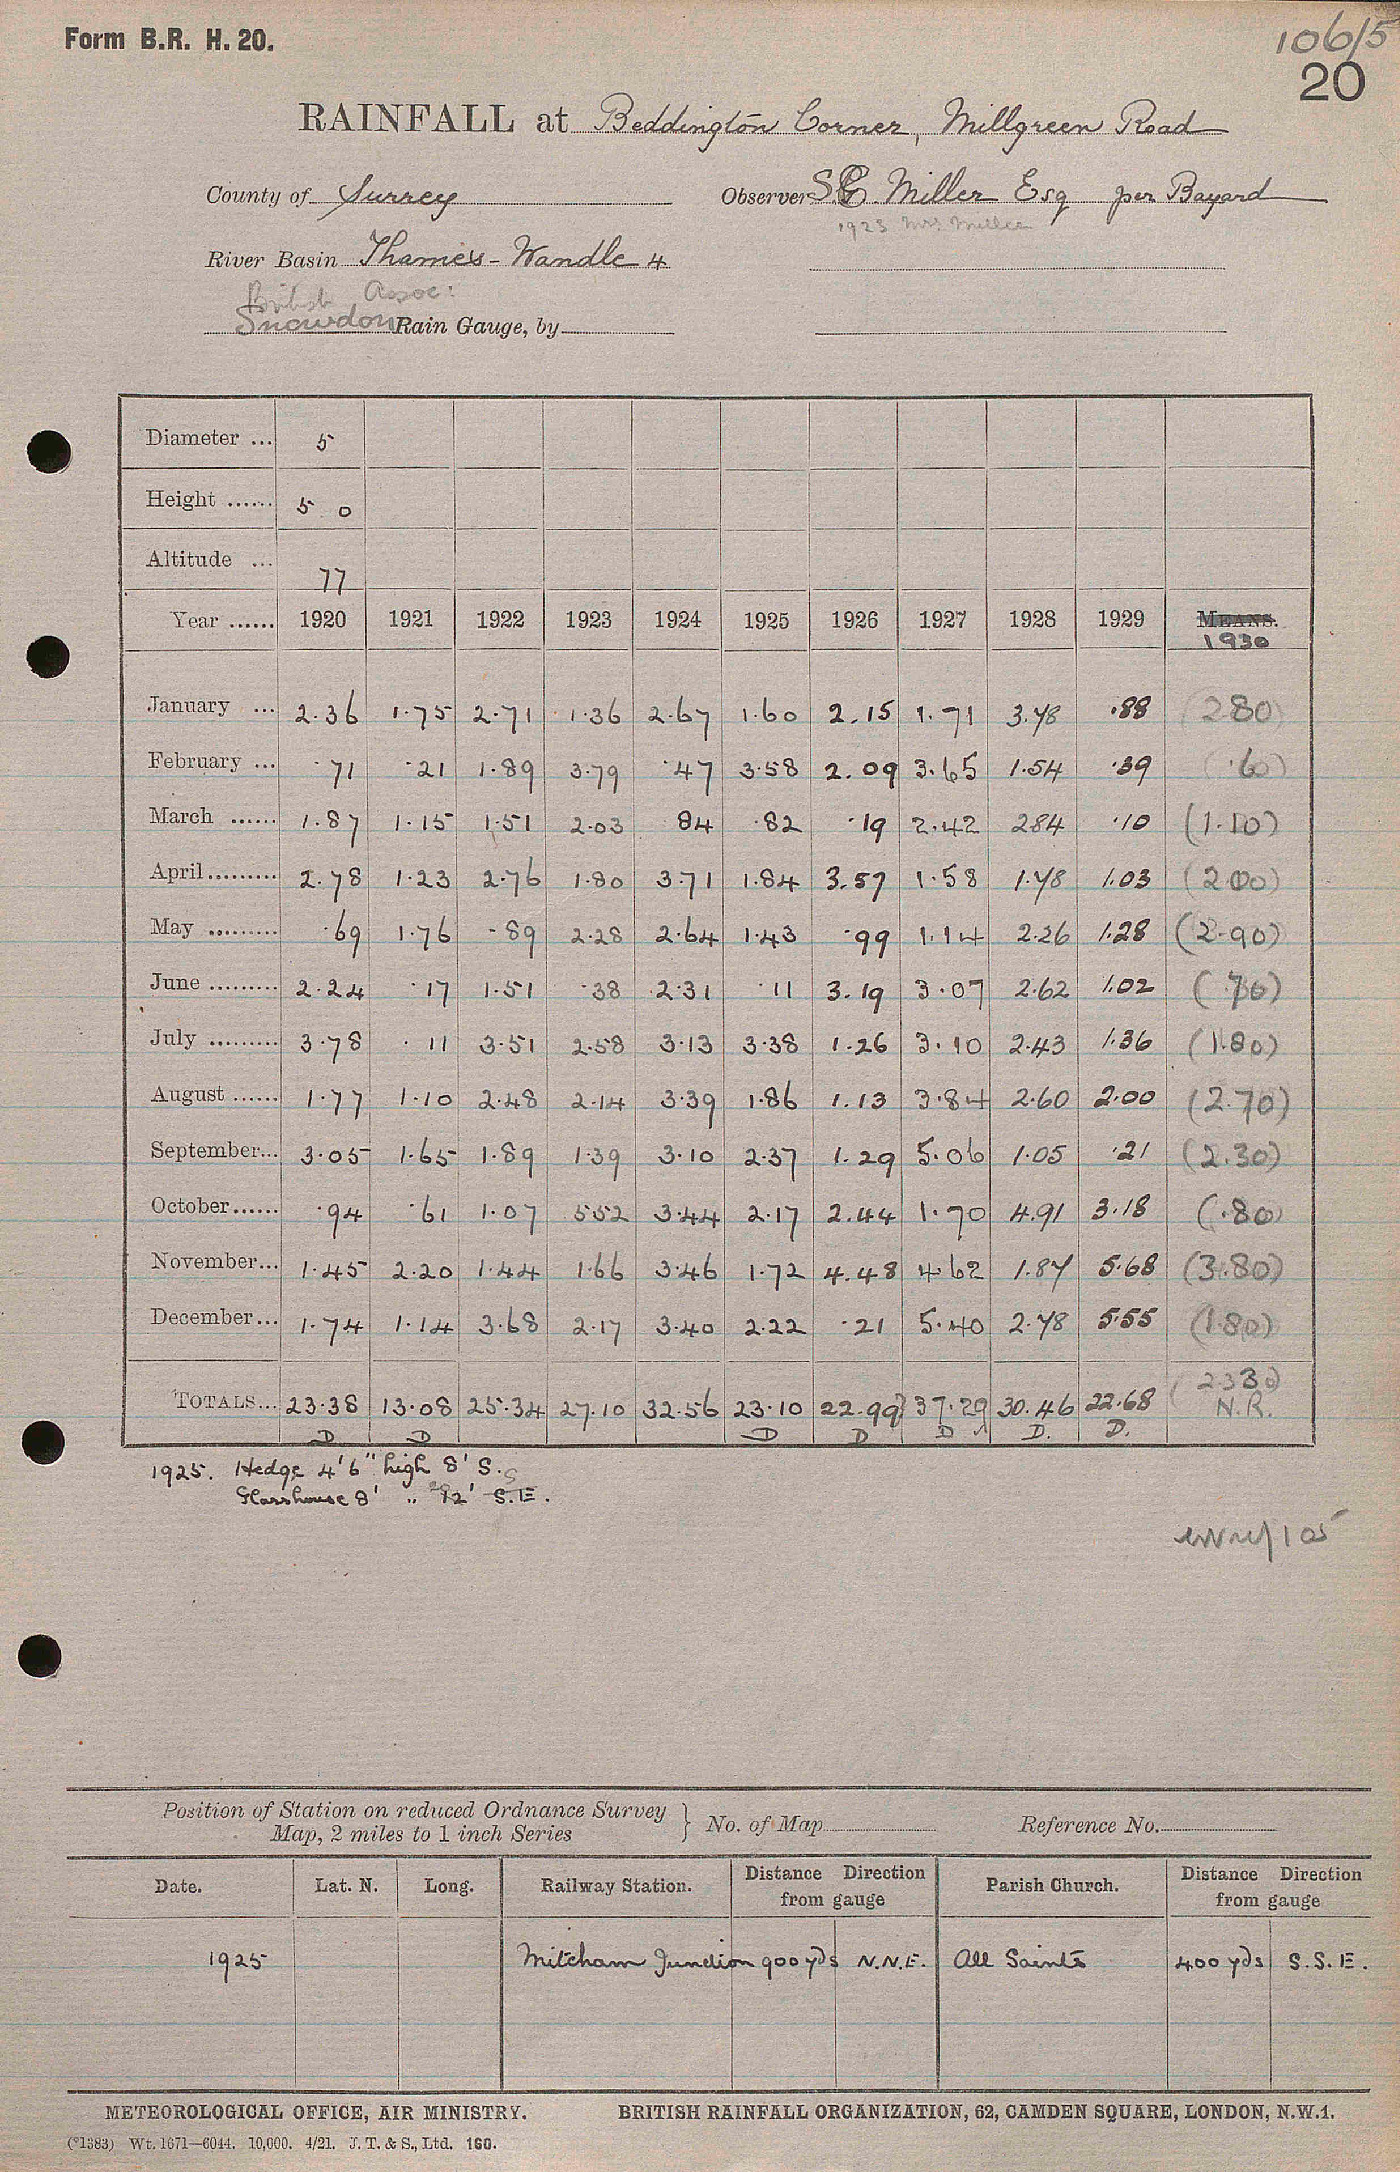 Form B.R. H. 20.
106/5
20
RAINFALL at Beddington Corner, Millgreen Road
County of Surrey Observer S. C. Miller Esq per Bayard
1923 Mrs Miller
River Basin Thames - Wandle 4
British Assoc:
Snowdon Rain Gauge, by
Diameter ... 5
Height ...... 5 0
Altitude ... 77
Year ...... 1920 1921 1922 1923 1924 1925 1926 1927 1928 1929 MEANS.
1930
January ... 2.36 1.75 2.71 1.36 2.67 1.60 2.15 1.71 3.78 .88 (2.80)
February ... .71 .21 1.89 3.79 .47 3.58 2.09 3.65 1.54 .39 (.60)
March ...... 1.87 1.15 1.51 2.03 84 .82 .19 2.42 284 .10 (1.10)
April ......... 2.78 1.23 2.76 1.80 3.71 1.84 3.57 1.58 1.78 1.03 (2.00)
May ......... .69 1.76 .89 2.28 2.64 1.43 .99 1.14 2.26 1.28 (2.90)
June ......... 2.24 .17 1.51 .38 2.31 .11 3.19 3.07 2.62 1.02 (.70)
July ......... 3.78 .11 3.51 2.58 3.13 3.38 1.26 3.10 2.43 1.36 (1.80)
August ...... 1.77 1.10 2.48 2.14 3.39 1.86 1.13 3.84 2.60 2.00 (2.70)
September... 3.05 1.65 1.89 1.39 3.10 2.37 1.29 5.06 1.05 .21 (2.30)
October...... .94 .61 1.07 5.52 3.44 2.17 2.44 1.70 4.91 3.18 (.80)
November... 1.45 2.20 1.44 1.66 3.46 1.72 4.48 4.62 1.87 5.68 (3.80)
December... 1.74 1.14 3.68 2.17 3.40 2.22 .21 5.40 2.78 5.55 (1.80)
TOTALS... 23.38 13.08 25.34 27.10 32.56 23.10 22.99 37.29 30.46 22.68 (23.30)
N.R.
D D D D D D. D.
1925. Hedge 4'6" high 8' S.
Glasshouse 8' " 12' S.E.
Position of Station on reduced Ordnance Survey
Map, 2 miles to 1 inch Series } No. of Map Reference No.
Date. Lat. N. Long. Railway Station. Distance Direction from gauge Parish Church. Distance Direction from gauge
1925 Mitcham Junction 900 yds N.N.E. All Saints 400 yds S.S.E.
METEOROLOGICAL OFFICE, AIR MINISTRY. BRITISH RAINFALL ORGANIZATION, 62, CAMDEN SQUARE, LONDON, N.W.1.
(*1383) Wt. 1671—6044. 10,000. 4/21. J. T. & S., Ltd. 160.